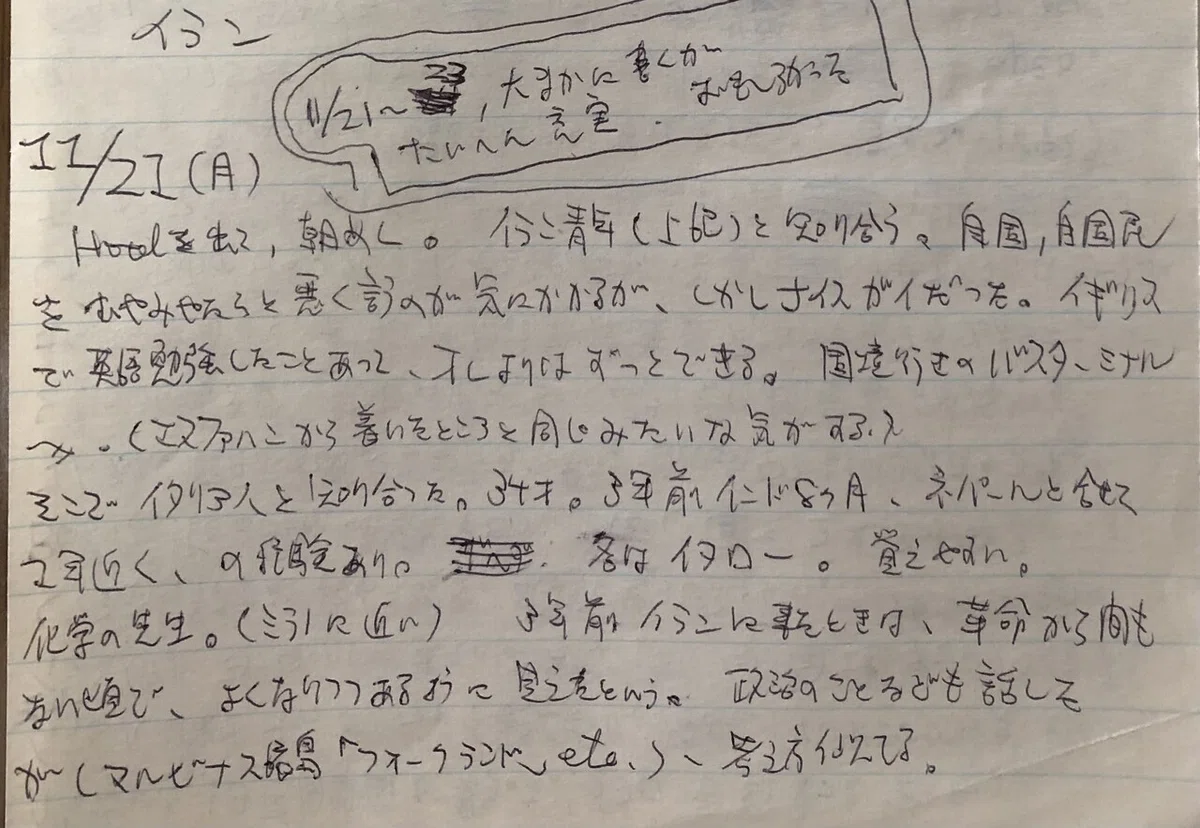 イラン
11/21〜23, 大まかに書くが おもしろかった
たいへん充実.
11/21(月)
Hotelを出て, 朝めし。 イラン青年(上記)と知り合う。自国,自国民
をむやみやたらと悪く言うのが気にかかるが、しかしナイスガイだった。イギリス
で英語勉強したことあって、オレよりはずっとできる。国境行きのバスターミナル
へ。(エスファハンから着いたところと同じみたいな気がする。)
そこでイタリア人と知り合った。34才。3年前インド8ヶ月、ネパールと合せて
2年近く、の経験あり。 名はイタロー。覚えやすい。
化学の先生。(ミラノに近い) 3年前イランに来たときは、革命から間も
ない頃で、よくなりつつあるように見えたという。政治のことなども話した
が(マルビナス諸島「フォークランド」etc.)、考え方似てる。